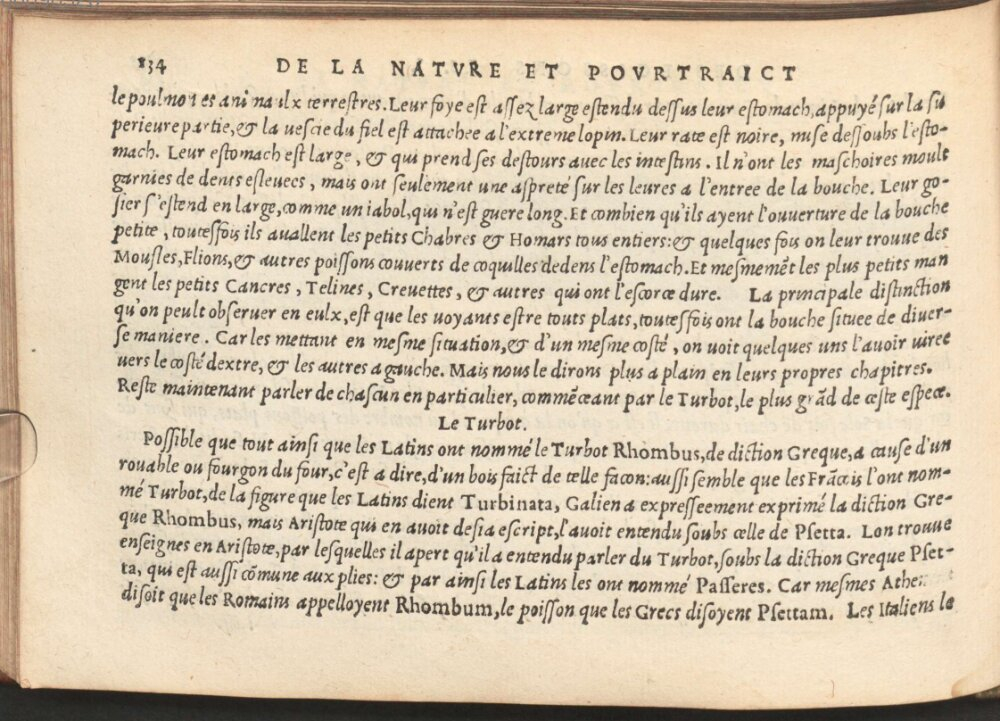 134 DE LA NATVRE ET POVRTRAICT
le poulmon es animaulx terrestres. Leur foye est assez large estendu dessus leur estomach, appuyé sur la su
perieure partie, & la vescie du fiel est attachee a l'extreme lopin. Leur rate est noire, mise dessoubs l'esto-
mach. Leur estomach est large, & qui prend ses destours auec les intestins. Il n'ont les maschoires moult
garnies de dents esleuees, mais ont seulement une aspreté sur les leures a l'entree de la bouche. Leur go-
sier s'estend en large, comme un iabol, qui n'est guere long. Et combien qu'ils ayent l'ouuerture de la bouche
petite, toutesfois ils auallent les petits Chabres & Homars tous entiers: & quelques fois on leur trouue des
Mousles, Flions, & autres poissons couuerts de coquilles dedens l'estomach. Et mesmemẽt les plus petits man
gent les petits Cancres, Telines, Creuettes, & autres qui ont l'escorce dure. La principale distinction
qu'on peult obseruer en eulx, est que les uoyants estre touts plats, toutesfois ont la bouche situee de diuer-
se maniere. Car les mettant en mesme situation, & d'un mesme costé, on uoit quelques uns l'auoir uiree
uers le costé dextre, & les autres a gauche. Mais nous le dirons plus a plain en leurs propres chapitres.
Reste maintenant parler de chascun en particulier, commẽceant par le Turbot, le plus grãd de ceste espece.
Le Turbot.
Possible que tout ainsi que les Latins ont nommé le Turbot Rhombus, de diction Greque, a cause d'un
rouable ou fourgon du four, c'est a dire, d'un bois faict de telle facon: aussi semble que les Frãcois l'ont nom-
mé Turbot, de la figure que les Latins dient Turbinata, Galien a expresseement exprimé la diction Gre-
que Rhombus, mais Aristote qui en auoit desia escript, l'auoit entendu soubs celle de Psetta. Lon trouue
enseignes en Aristote, par lesquelles il apert qu'il a entendu parler du Turbot, soubs la diction Greque Pset-
ta, qui est aussi cõmune aux plies: & par ainsi les Latins les ont nommé Passeres. Car mesmes
disoit que les Romains appelloyent Rhombum, le poisson que les Grecs disoyent Psettam. Les Italiens le